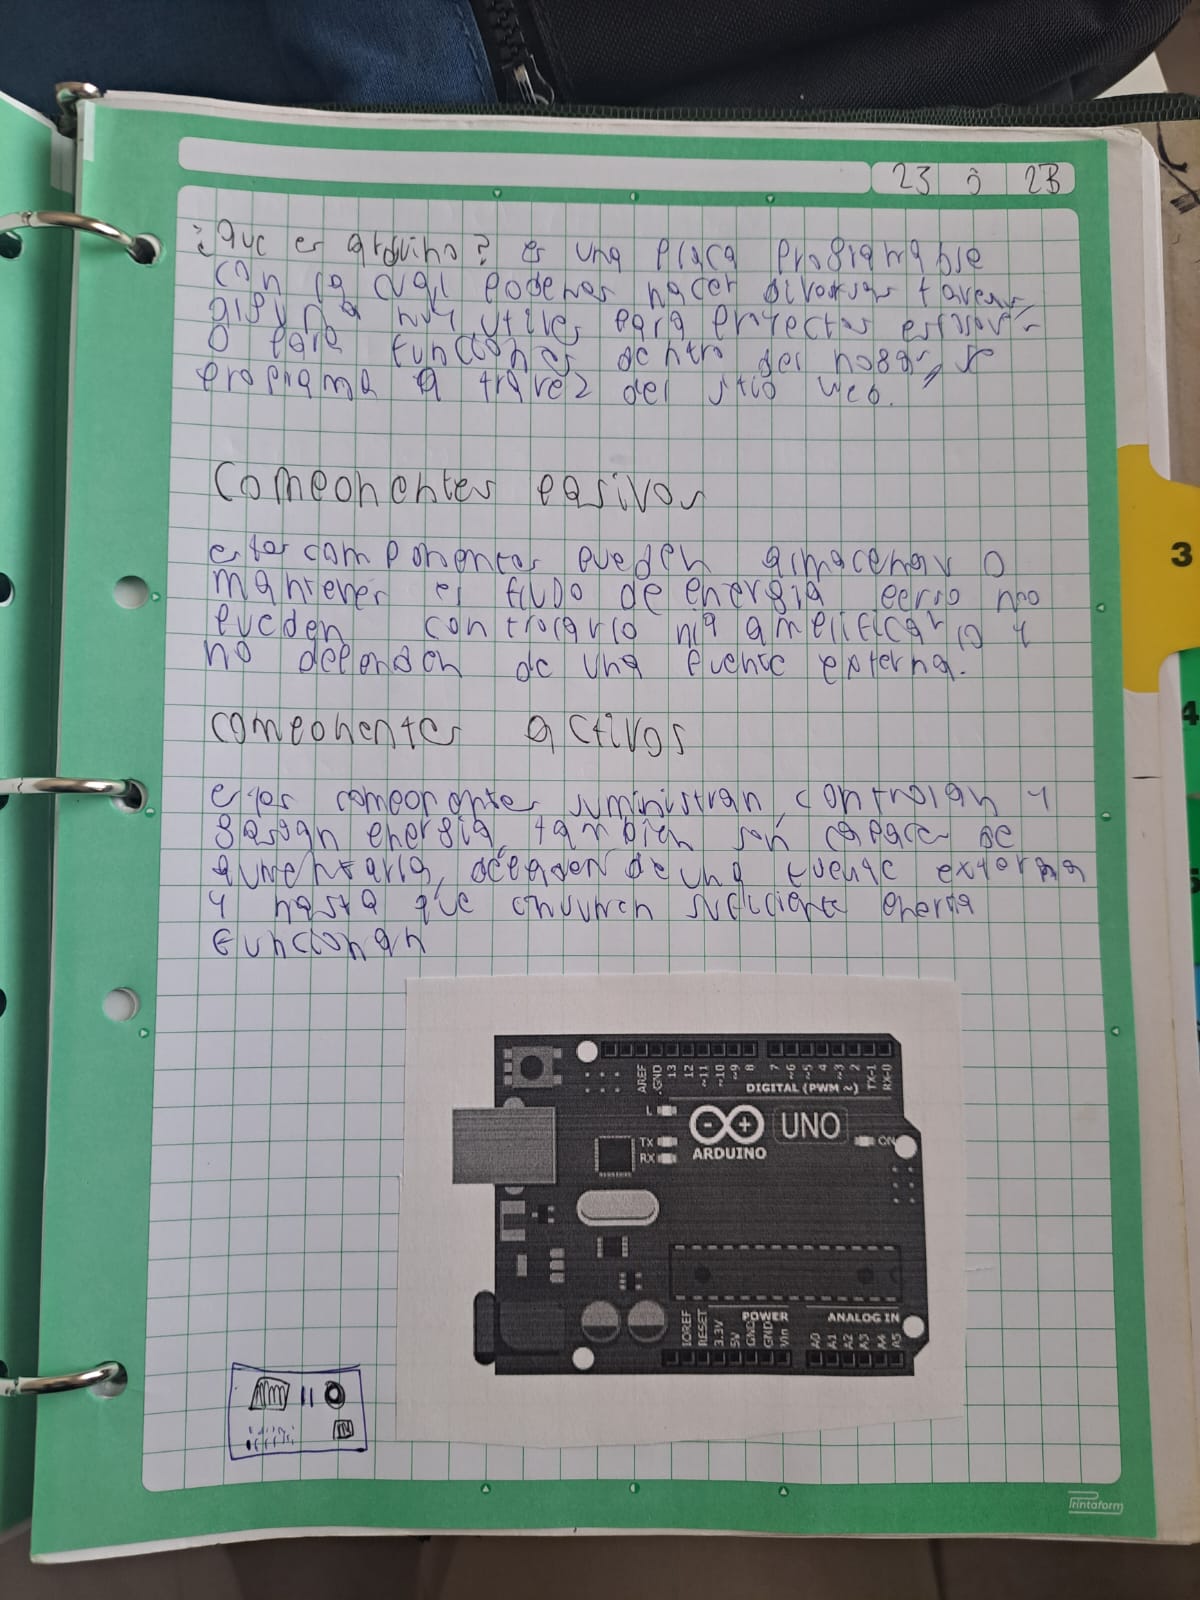 23 ö 2B
¿Que es arduino? es una placa programable
con la cual podemos hacer diversas tareas
alguna muy utiles para proyectos escolar
o para funciones dentro del hogar, se
programa a travez del sitio web.
Componentes pasivos
estos componentes pueden almacenar o
mantener el flujo de energia perro no
pueden controlarlo nia amplificarlo y
no dependen de una fuente externa.
componentes activos
estos componentes suministran, controlan y
gastan energia, tambien son capace de
aumentarla, dependen de una fuente externa
y hasta que consumen suficiente energia
funcionan
AREF
GND
13
12
~11
~10
~9
8
7
~6
~5
4
~3
2
TX-1
RX-0
DIGITAL (PWM ~)
L
TX
RX
ARDUINO
UNO
ON
IOREF
RESET
3.3V
5V
GND
GND
Vin
POWER
ANALOG IN
A0
A1
A2
A3
A4
A5
3
4
5
Printaform